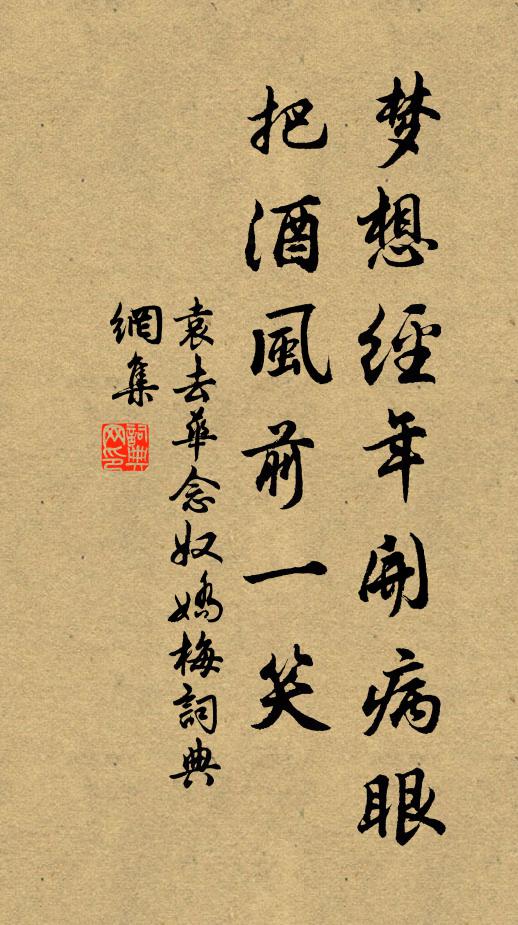 梦想經年開病眼
把酒風前一笑
袁去華念奴嬌梅詞典
網集
詞典網印